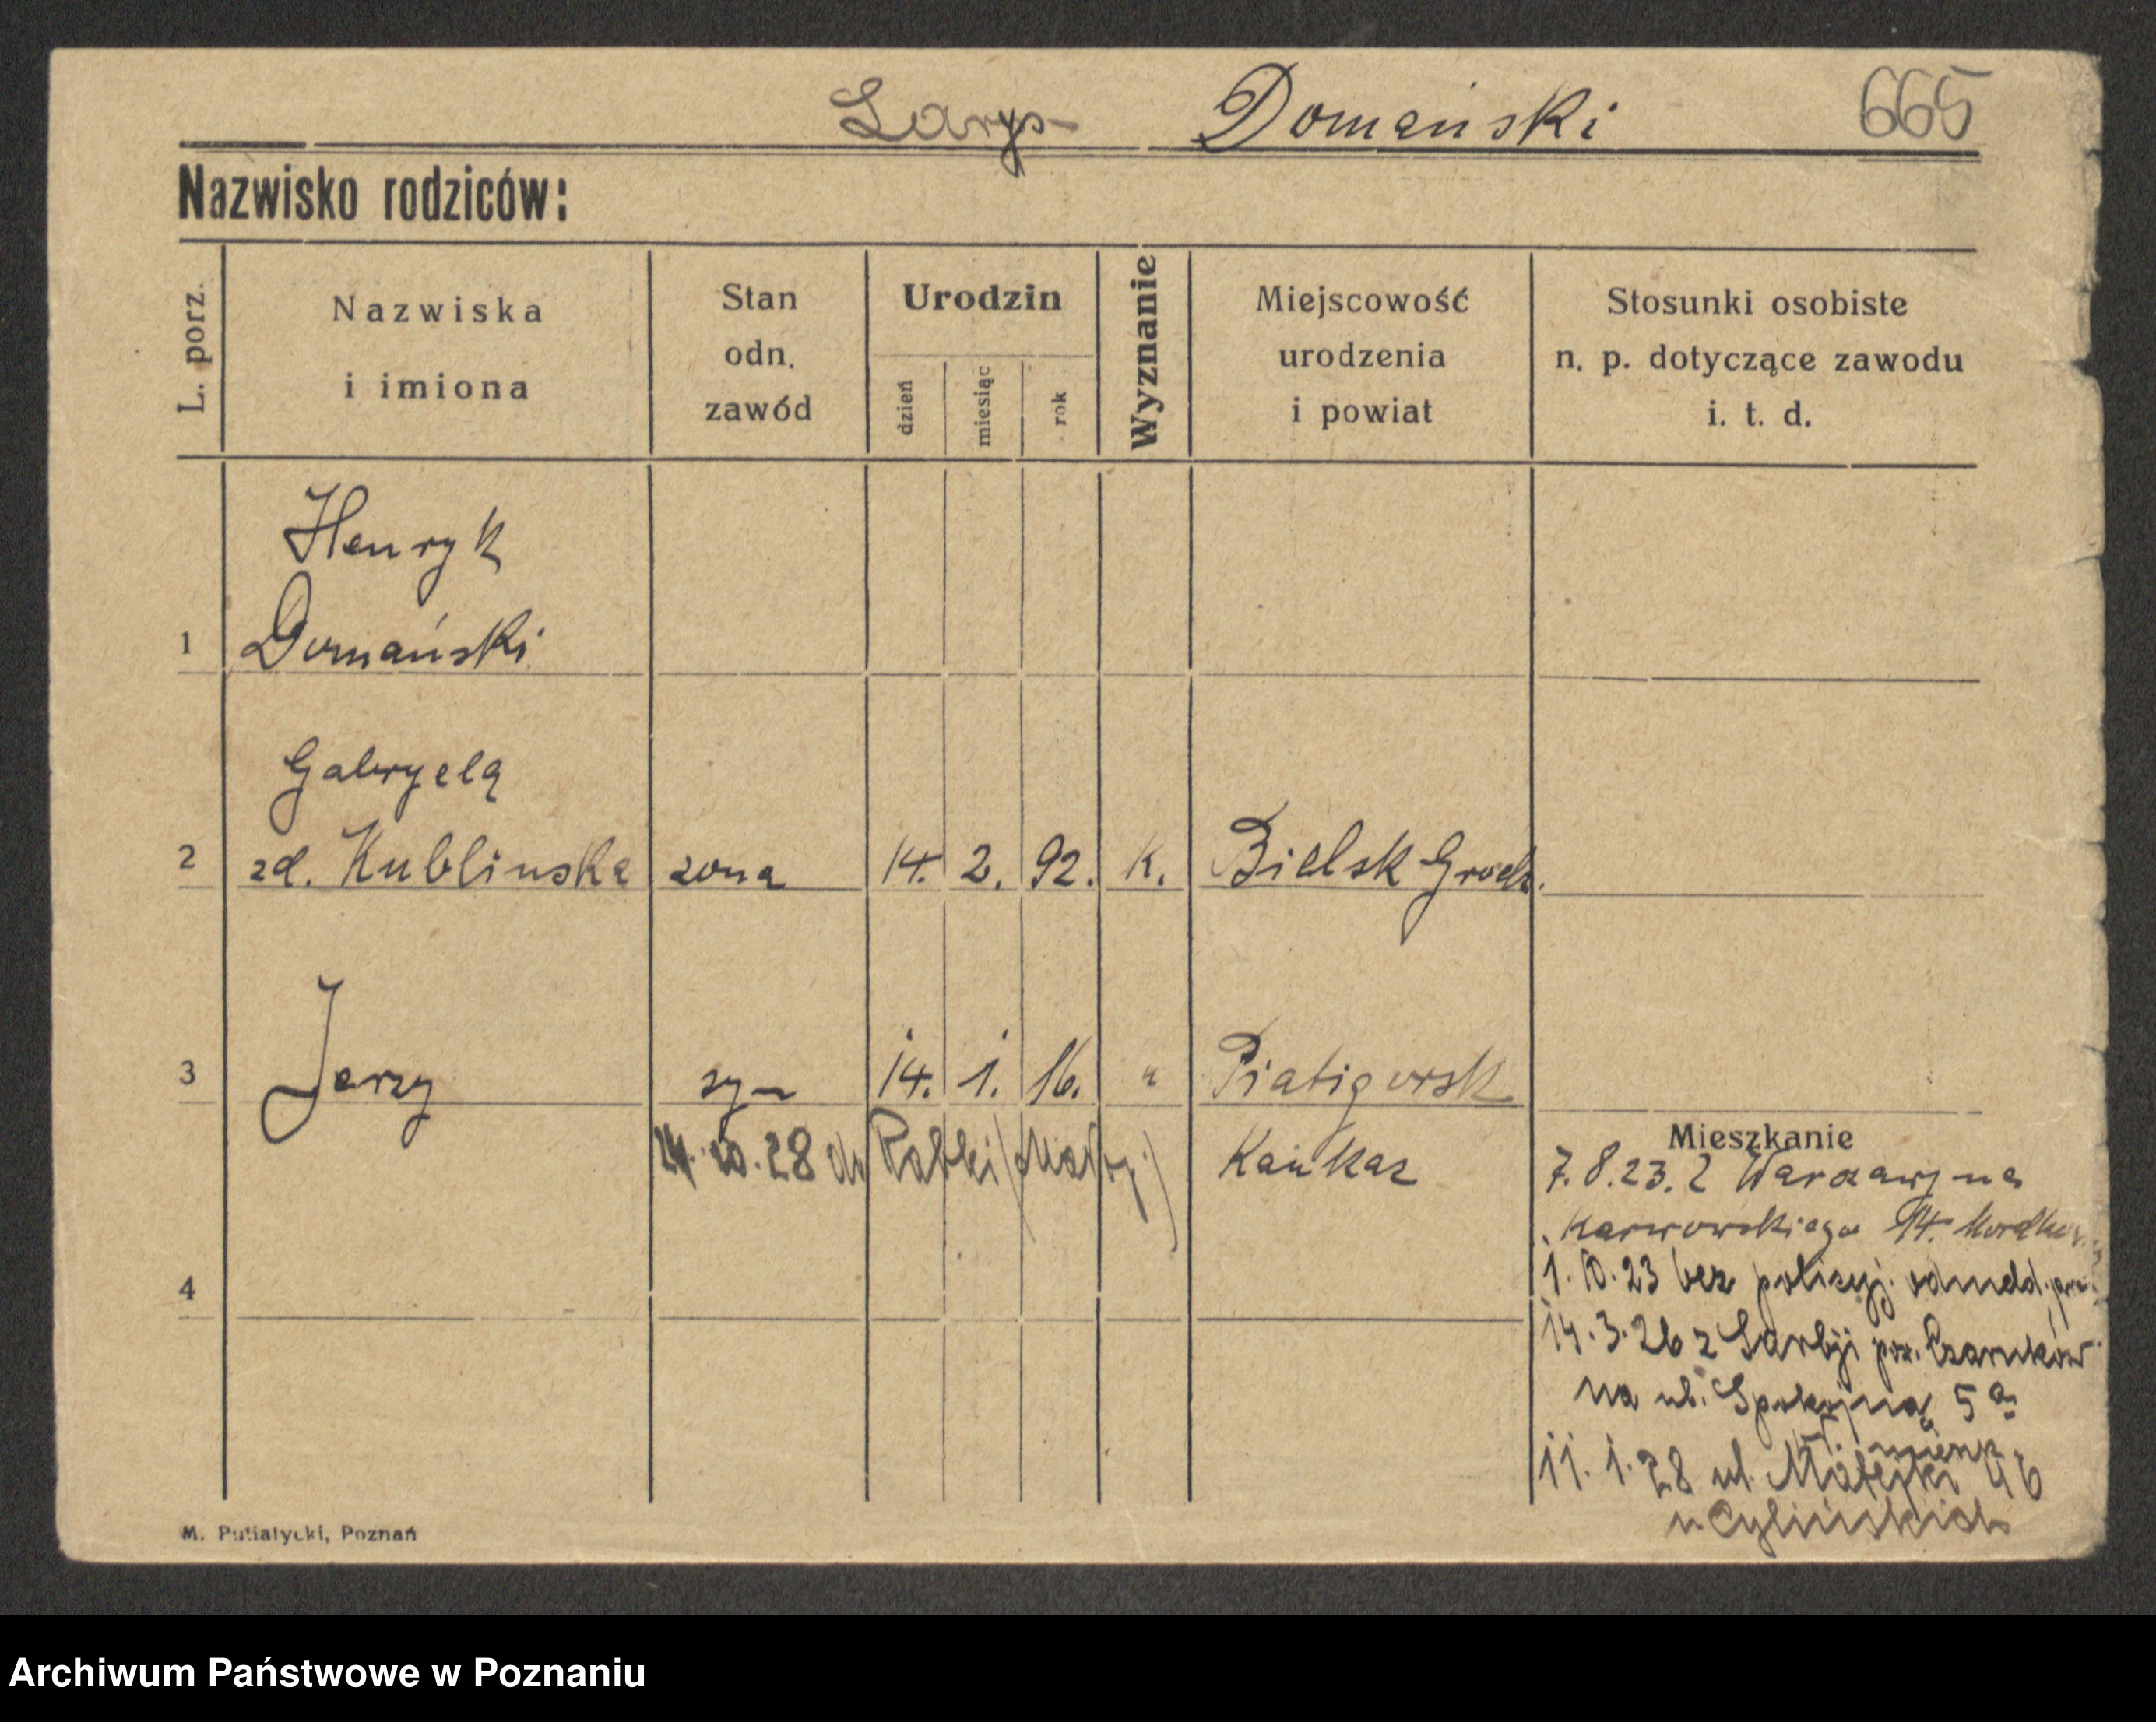 Larys- Domański 665
Nazwisko rodziców:
L. porz.
Nazwiska
i imiona
Stan
odn.
zawód
Urodzin
dzień
miesiąc
rok
Wyznanie
Miejscowość
urodzenia
i powiat
Stosunki osobiste
n. p. dotyczące zawodu
i. t. d.
Henryk
1 Domański
Gabryelą
2 zd. Kublinska zona 14. 2. 92. K. Bielsk Grodz.
3 Jerzy syn 14. 1. 16. " Piatigorsk
24. 10. 28 do Rabki Kaukaz
4
Mieszkanie
7.8.23. z Warszawy na
Karwowskiego 14.
1.10.23 bez policyj. odmeld.
14.3.26 z Sarbji pow. Czarnków
na ul. Spokojną 5a
11.1.28 ul. Matejki 46
u Cylińskich
M. Putiatycki, Poznań
Archiwum Państwowe w Poznaniu